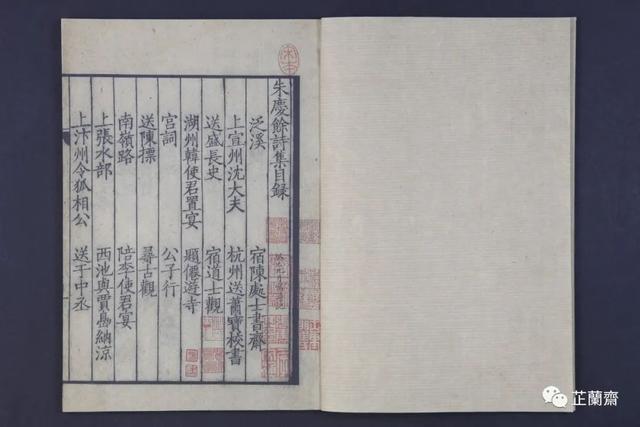 朱慶餘詩集目録
泛溪 宿陳處士書齋
上宣州沈大夫 杭州送蕭寶校書
送盛長史 宿道士觀
湖州韓使君置宴 題僊遊寺
宫詞 公子行
送陳摽 尋古觀
南嶺路 陪李使君宴
上張水部 西池與賈島納涼
上汴州令狐相公 送于中丞
宋本
芷蘭齋